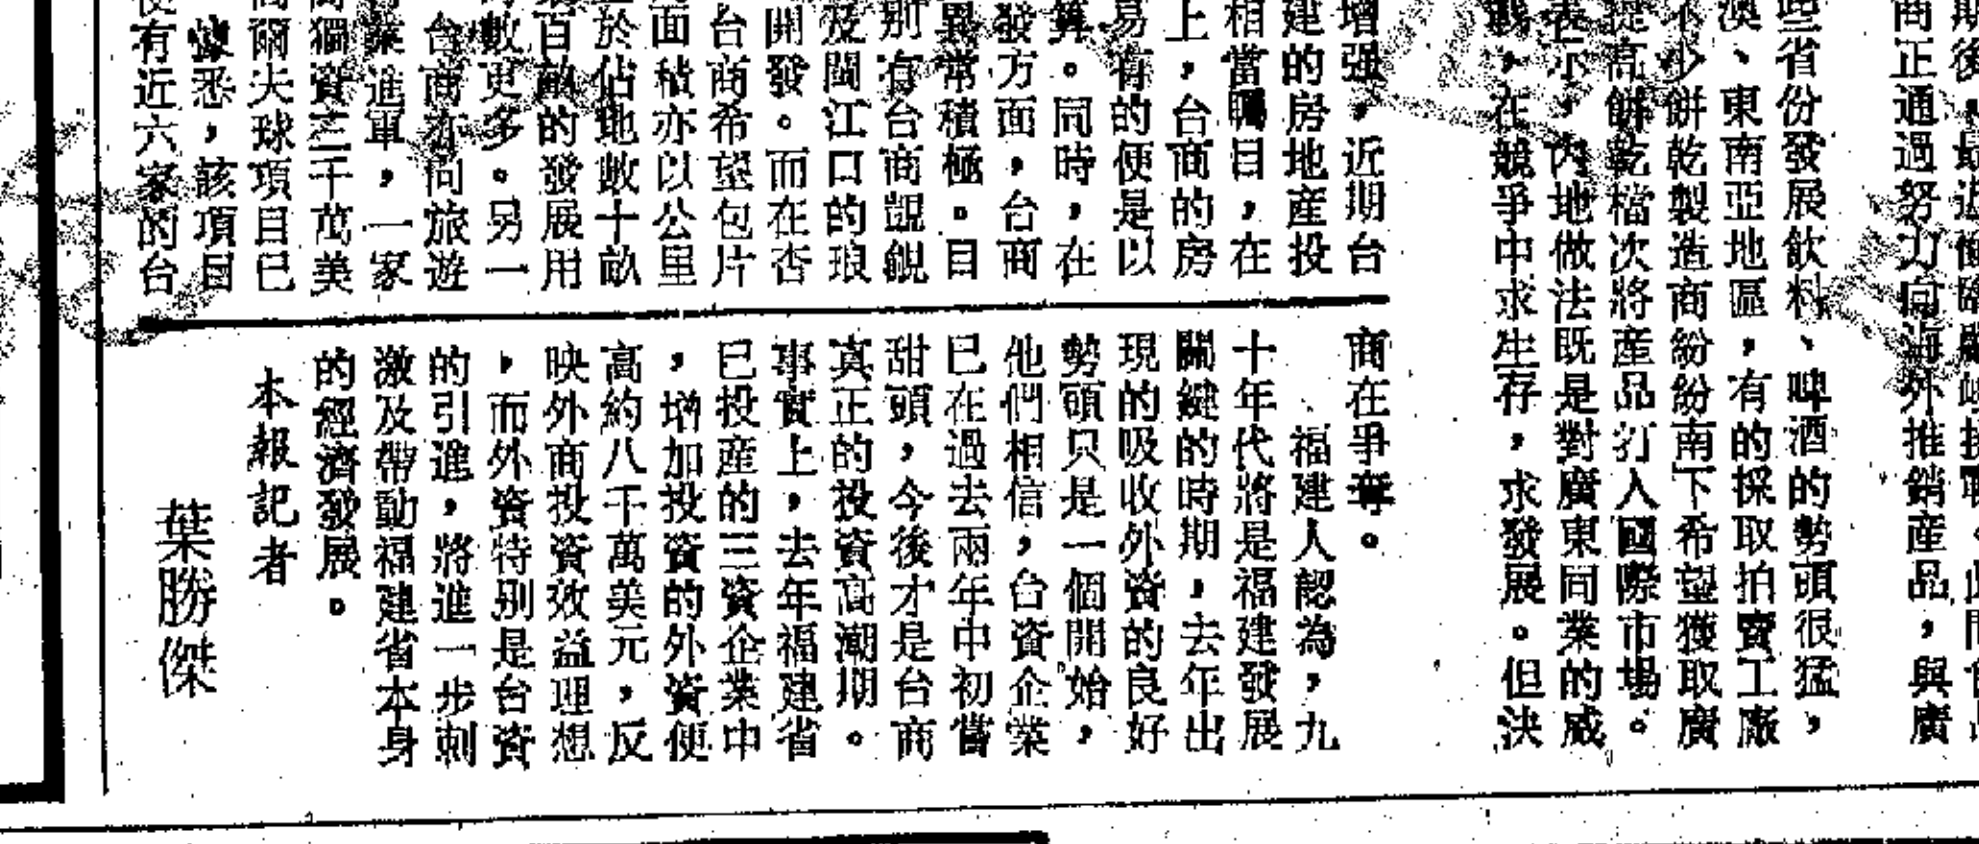 期後
商正通過努力向海外推銷產品,與廣
些省份發展飲料、啤酒的勢頭很猛,
澳、東南亞地區,有的採取拍賣工廠
不少餅乾製造商紛紛南下希望獲取廣
提高餅乾檔次將產品打入國際市場。
表示,內地做法既是對廣東同業的威
戰,在競爭中求生存,求發展。但決
增强,近期台
建的房地產投
相當矚目,在
上,台商的房
易有的便是以
算。同時,在
發方面,台商
異常積極。目
別有台商覬覦
及閩江口的琅
開發。而在杏
台商希望包片
面積亦以公里
於佔地數十畝
百畝的發展用
數更多。另一
台商亦向旅遊
業進軍,一家
獨資三千萬美
高爾夫球項目已
據悉,該項目
便有近六家的台
商在爭奪。
福建人認為,九
十年代將是福建發展
關鍵的時期,去年出
現的吸收外資的良好
勢頭只是一個開始,
他們相信,台資企業
已在過去兩年中初嘗
甜頭,今後才是台商
真正的投資高潮期。
事實上,去年福建省
已投產的三資企業中
,增加投資的外資便
高約八千萬美元,反
映外商投資效益理想
,而外資特別是台資
的引進,將進一步刺
激及帶動福建省本身
的經濟發展。
本報記者
葉勝傑